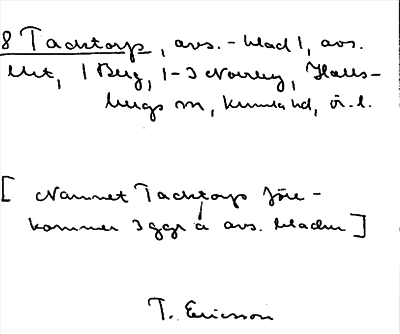 8 Tacktorp, avs.-blad 1, avs.
1 Berg, 1-3 Halls-
bergs sn, Kumla hd, Ör. l.
[ Namnet Tacktorp före-
kommer 3 ggr å avs. bladen ]
T. Ericsson